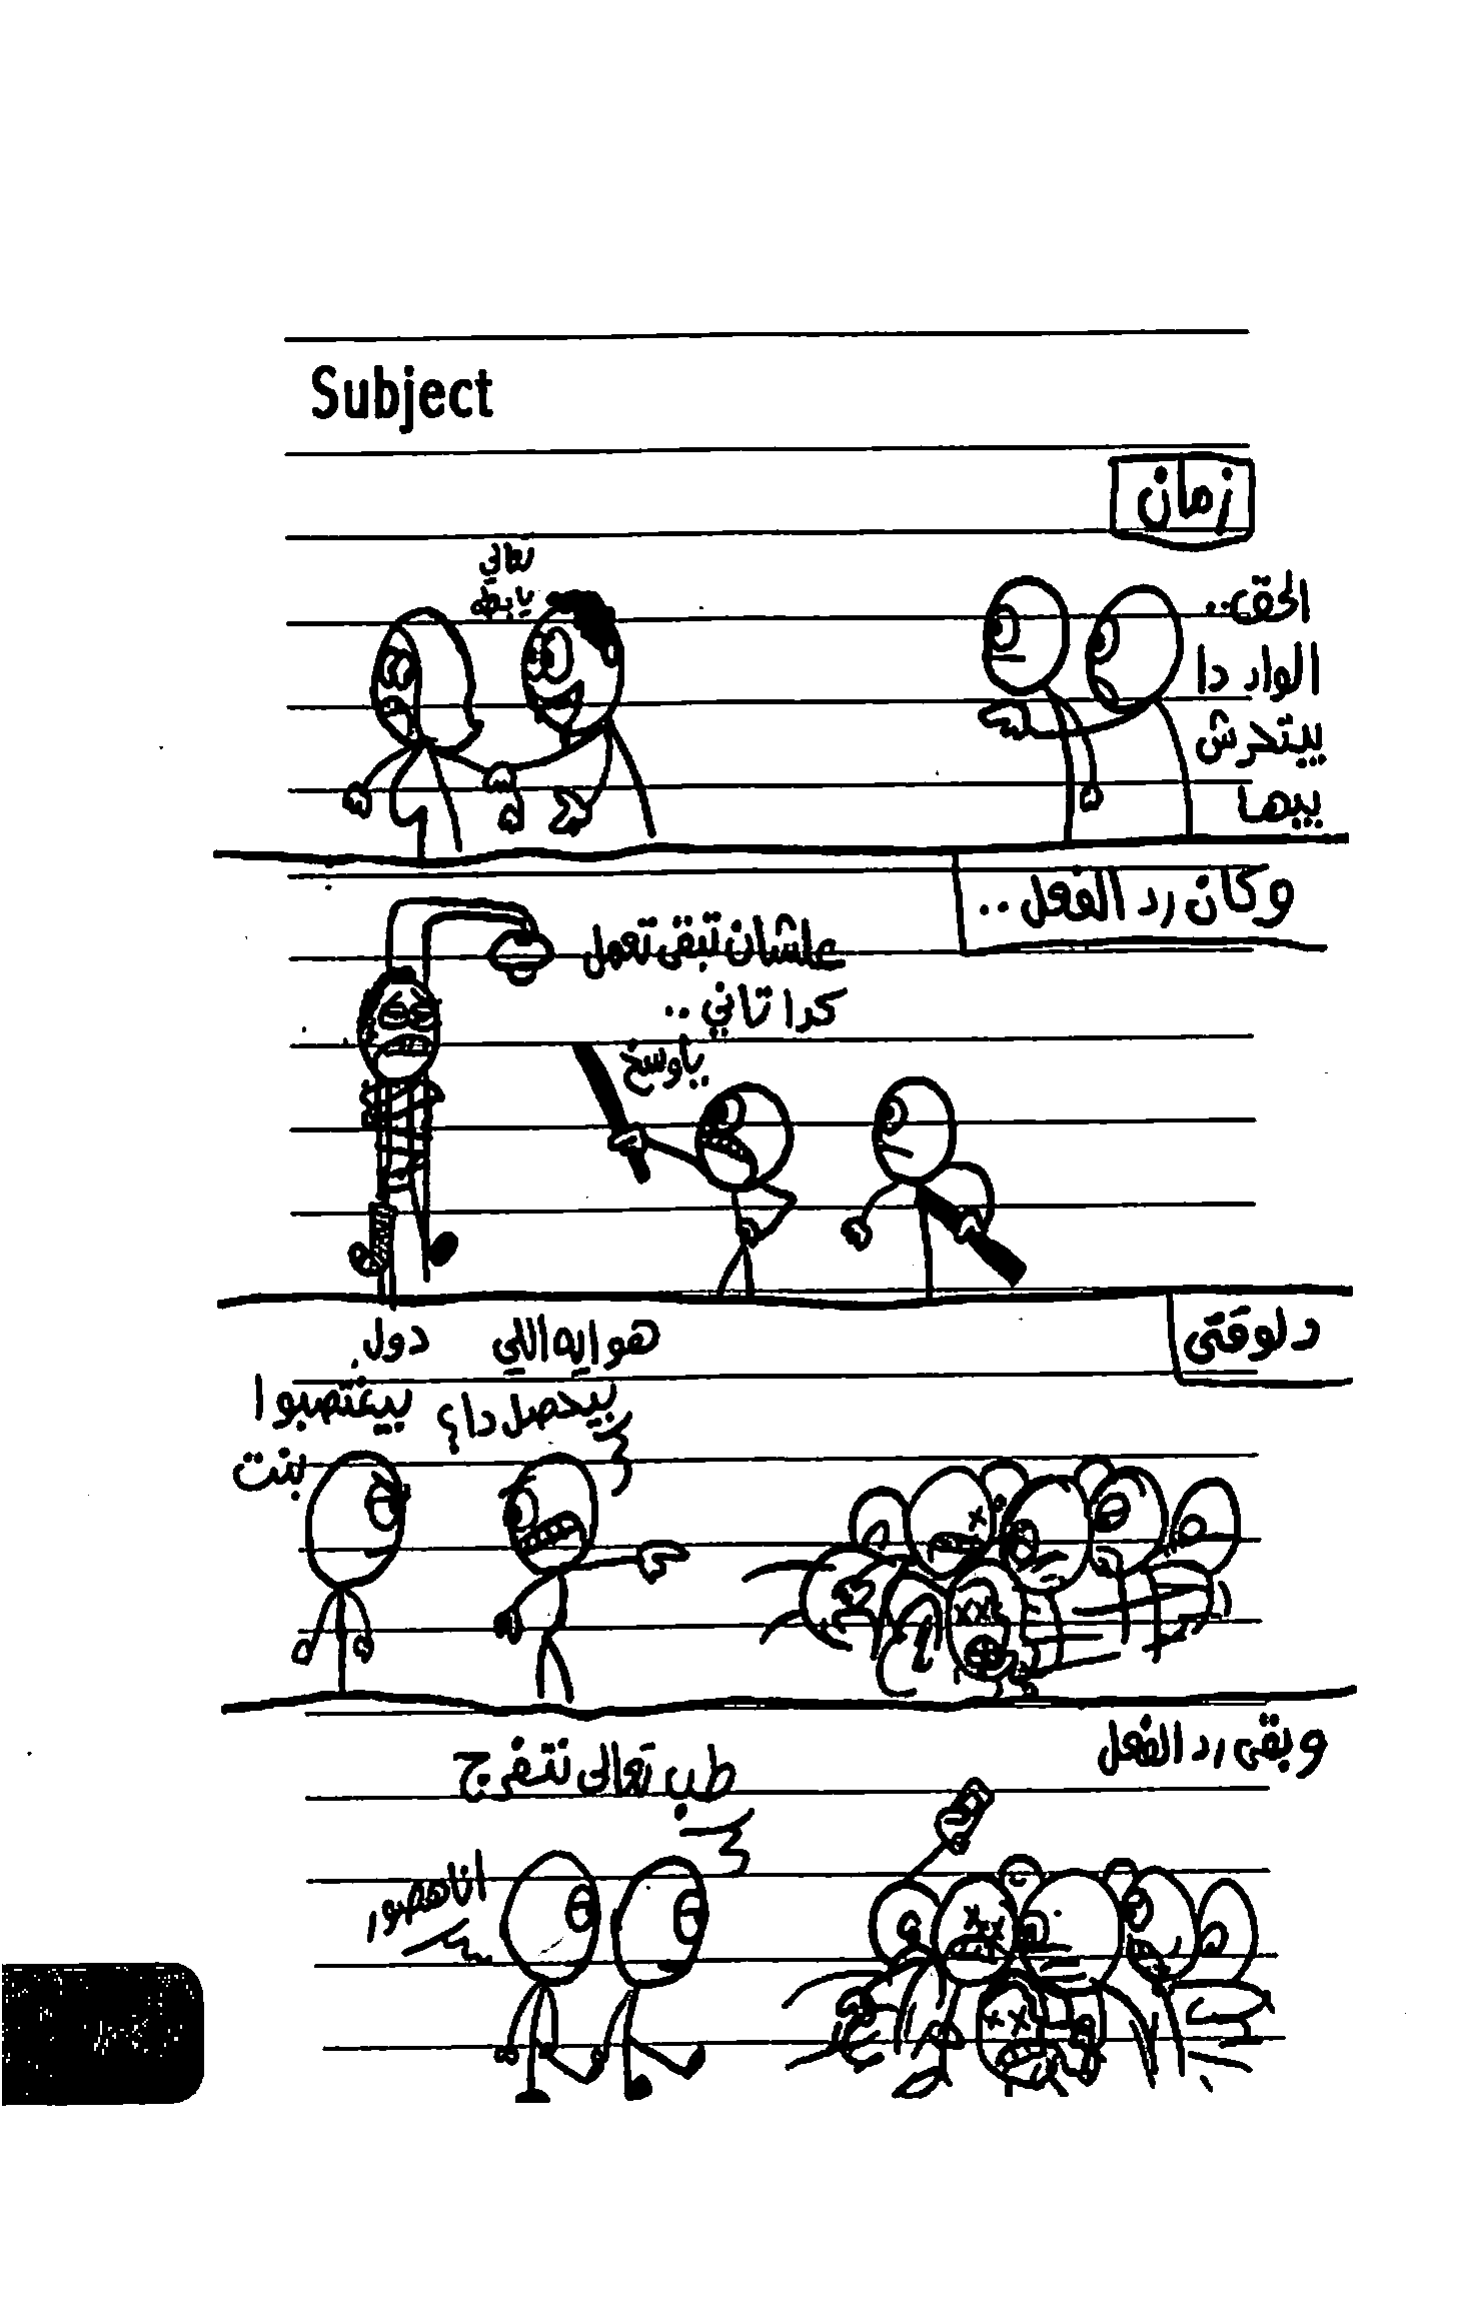 Subject
زمان
الحق..
الواد دا
بيتحرش
بيها
تعالي
يا بطه
وكان رد الفعل..
علشان تبقى تعمل
كدا تاني..
ياوسخ
دلوقتى
هو ايه اللي
بيحصل دا؟
دول
بيغتصبوا
بنت
وبقى رد الفعل
طب تعالى نتفرج
انا هصور